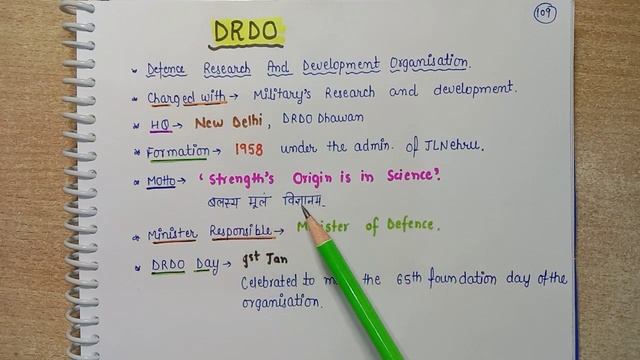 109
DRDO
Defence Research And Development Organisation.
Charged with → Military's Research and development.
HQ → New Delhi, DRDO Dhawan
Formation → 1958 under the admin. of JLNehru.
Motto → 'Strength's Origin is in Science'.
बलस्य मूलं विज्ञानम.
Minister Responsible → Minister of Defence.
DRDO Day → 1st Jan
Celebrated to the 65th foundation day of the
organisation.